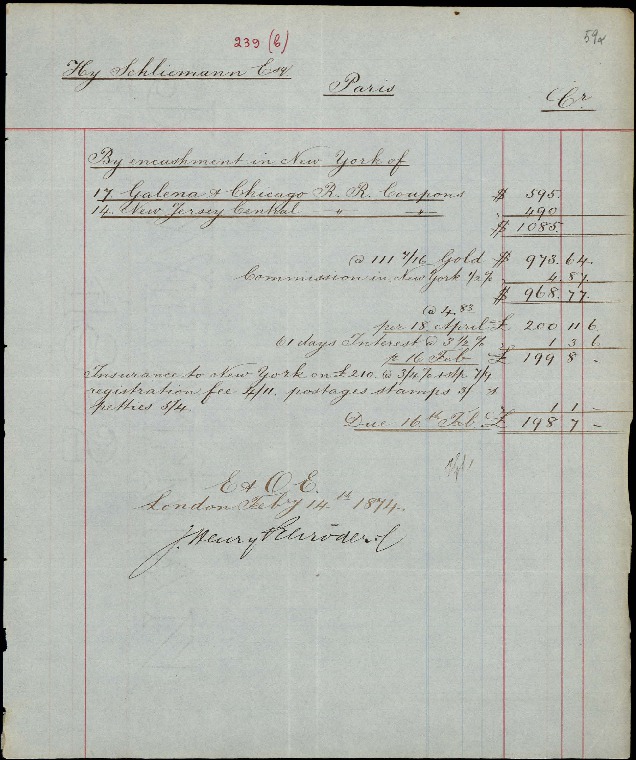 239 (6)
59a
Hy Schliemann Esqr
Paris
Cr
By encashment in New York of
17 Galena & Chicago R. R. Coupons $ 595.
14 New Jersey Central " " " 490
$ 1085.
@ 111 7/16 Gold $ 973.64.
Commission in New York 1/2 % 4.87.
$ 968.77.
@ 4.83
per 18 April £ 200 11 6
61 days Interest @ 3 1/2 % 1 3 6
pr 16 Feb £ 199 8 -
Insurance to New York on £ 210. @ 3/4 %
registration fee 4/11. postages stamps 3/
petties 5/4. 1 1 -
Due 16th Feb. £ 198 7 -
E & O. E.
London Feby 14th 1874.
J. Henry Schröder & C